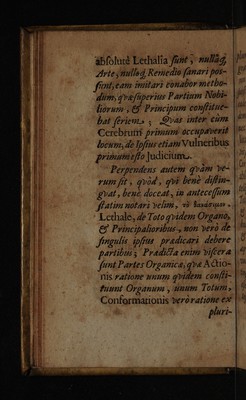 absolutè Lethalia sunt, nullâq́
Arte, nulloq́ Remedio sanari pos-
sint, eam imitari conabor metho-
dum, qvæ superius Partium Nobi-
liorum, & Principum constitue-
bat seriem; Qvas inter cùm
Cerebrum primum occupaverit
locum, de Ipsius etiam Vulneribus
primum esto Judicium.
Perpendens autem qvàm ve-
rum sit, qvòd, qvi benè distin-
gvat, benè doceat, in antecessum
statim notari velim,
Lethale, de Toto qvidem Organo,
& Principalioribus, non verò de
singulis ipsius prædicari debere
partibus; Prædicta enim viscera
sunt Partes Organicæ, qvæ Actio-
nis ratione unum qvidem consti-
tuunt Organum, unum Totum,
Conformationis verò ratione ex
pluri-